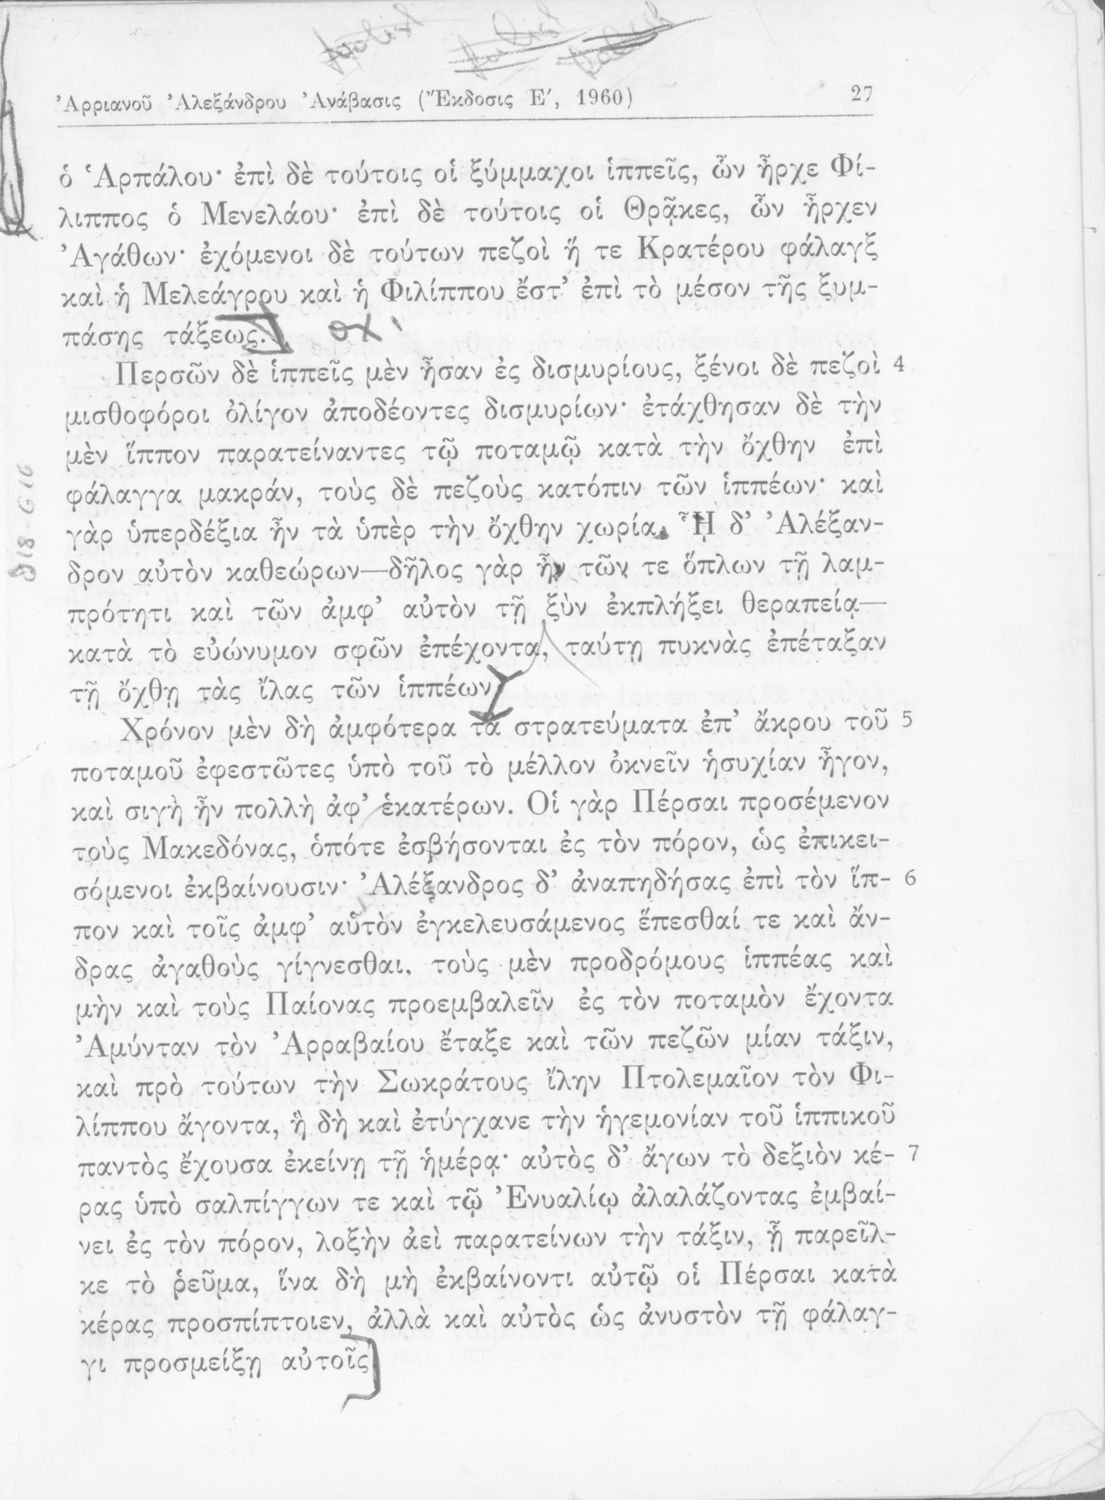 Ἀρριανοῦ Ἀλεξάνδρου Ἀνάβασις (Ἔκδοσις Ε΄, 1960) 27
ὁ Ἁρπάλου· ἐπὶ δὲ τούτοις οἱ ξύμμαχοι ἱππεῖς, ὧν ἦρχε Φί-
λιππος ὁ Μενελάου· ἐπὶ δὲ τούτοις οἱ Θρᾷκες, ὧν ἦρχεν
Ἀγάθων· ἐχόμενοι δὲ τούτων πεζοὶ ἥ τε Κρατέρου φάλαγξ
καὶ ἡ Μελεάγρου καὶ ἡ Φιλίππου ἔστ’ ἐπὶ τὸ μέσον τῆς ξυμ-
πάσης τάξεως. οχι
Περσῶν δὲ ἱππεῖς μὲν ἦσαν ἐς δισμυρίους, ξένοι δὲ πεζοὶ 4
μισθοφόροι ὀλίγον ἀποδέοντες δισμυρίων· ἐτάχθησαν δὲ τὴν
μὲν ἵππον παρατείναντες τῷ ποταμῷ κατὰ τὴν ὄχθην ἐπὶ
φάλαγγα μακράν, τοὺς δὲ πεζοὺς κατόπιν τῶν ἱππέων· καὶ
γὰρ ὑπερδέξια ἦν τὰ ὑπὲρ τὴν ὄχθην χωρία. Ἧι δ’ Ἀλέξαν-
δρον αὐτὸν καθεώρων—δῆλος γὰρ ἦν τῶν τε ὅπλων τῇ λαμ-
πρότητι καὶ τῶν ἀμφ’ αὐτὸν τῇ ξὺν ἐκπλήξει θεραπείᾳ—
κατὰ τὸ εὐώνυμον σφῶν ἐπέχοντα, ταύτῃ πυκνὰς ἐπέταξαν
τῇ ὄχθῃ τὰς ἴλας τῶν ἱππέων
Χρόνον μὲν δὴ ἀμφότερα τὰ στρατεύματα ἐπ’ ἄκρου τοῦ 5
ποταμοῦ ἐφεστῶτες ὑπὸ τοῦ τὸ μέλλον ὀκνεῖν ἡσυχίαν ἦγον,
καὶ σιγὴ ἦν πολλὴ ἀφ’ ἑκατέρων. Οἱ γὰρ Πέρσαι προσέμενον
τοὺς Μακεδόνας, ὁπότε ἐσβήσονται ἐς τὸν πόρον, ὡς ἐπικει-
σόμενοι ἐκβαίνουσιν· Ἀλέξανδρος δ’ ἀναπηδήσας ἐπὶ τὸν ἵπ- 6
πον καὶ τοῖς ἀμφ’ αὑτὸν ἐγκελευσάμενος ἕπεσθαί τε καὶ ἄν-
δρας ἀγαθοὺς γίγνεσθαι, τοὺς μὲν προδρόμους ἱππέας καὶ
μὴν καὶ τοὺς Παίονας προεμβαλεῖν ἐς τὸν ποταμὸν ἔχοντα
Ἀμύνταν τὸν Ἀρραβαίου ἔταξε καὶ τῶν πεζῶν μίαν τάξιν,
καὶ πρὸ τούτων τὴν Σωκράτους ἴλην Πτολεμαῖον τὸν Φι-
λίππου ἄγοντα, ἣ δὴ καὶ ἐτύγχανε τὴν ἡγεμονίαν τοῦ ἱππικοῦ
παντὸς ἔχουσα ἐκείνῃ τῇ ἡμέρᾳ· αὐτὸς δ’ ἄγων τὸ δεξιὸν κέ- 7
ρας ὑπὸ σαλπίγγων τε καὶ τῷ Ἐνυαλίῳ ἀλαλάζοντας ἐμβαί-
νει ἐς τὸν πόρον, λοξὴν ἀεὶ παρατείνων τὴν τάξιν, ᾗ παρεῖλ-
κε τὸ ῥεῦμα, ἵνα δὴ μὴ ἐκβαίνοντι αὐτῷ οἱ Πέρσαι κατὰ
κέρας προσπίπτοιεν, ἀλλὰ καὶ αὐτὸς ὡς ἀνυστὸν τῇ φάλαγ-
γι προσμείξῃ αὐτοῖς